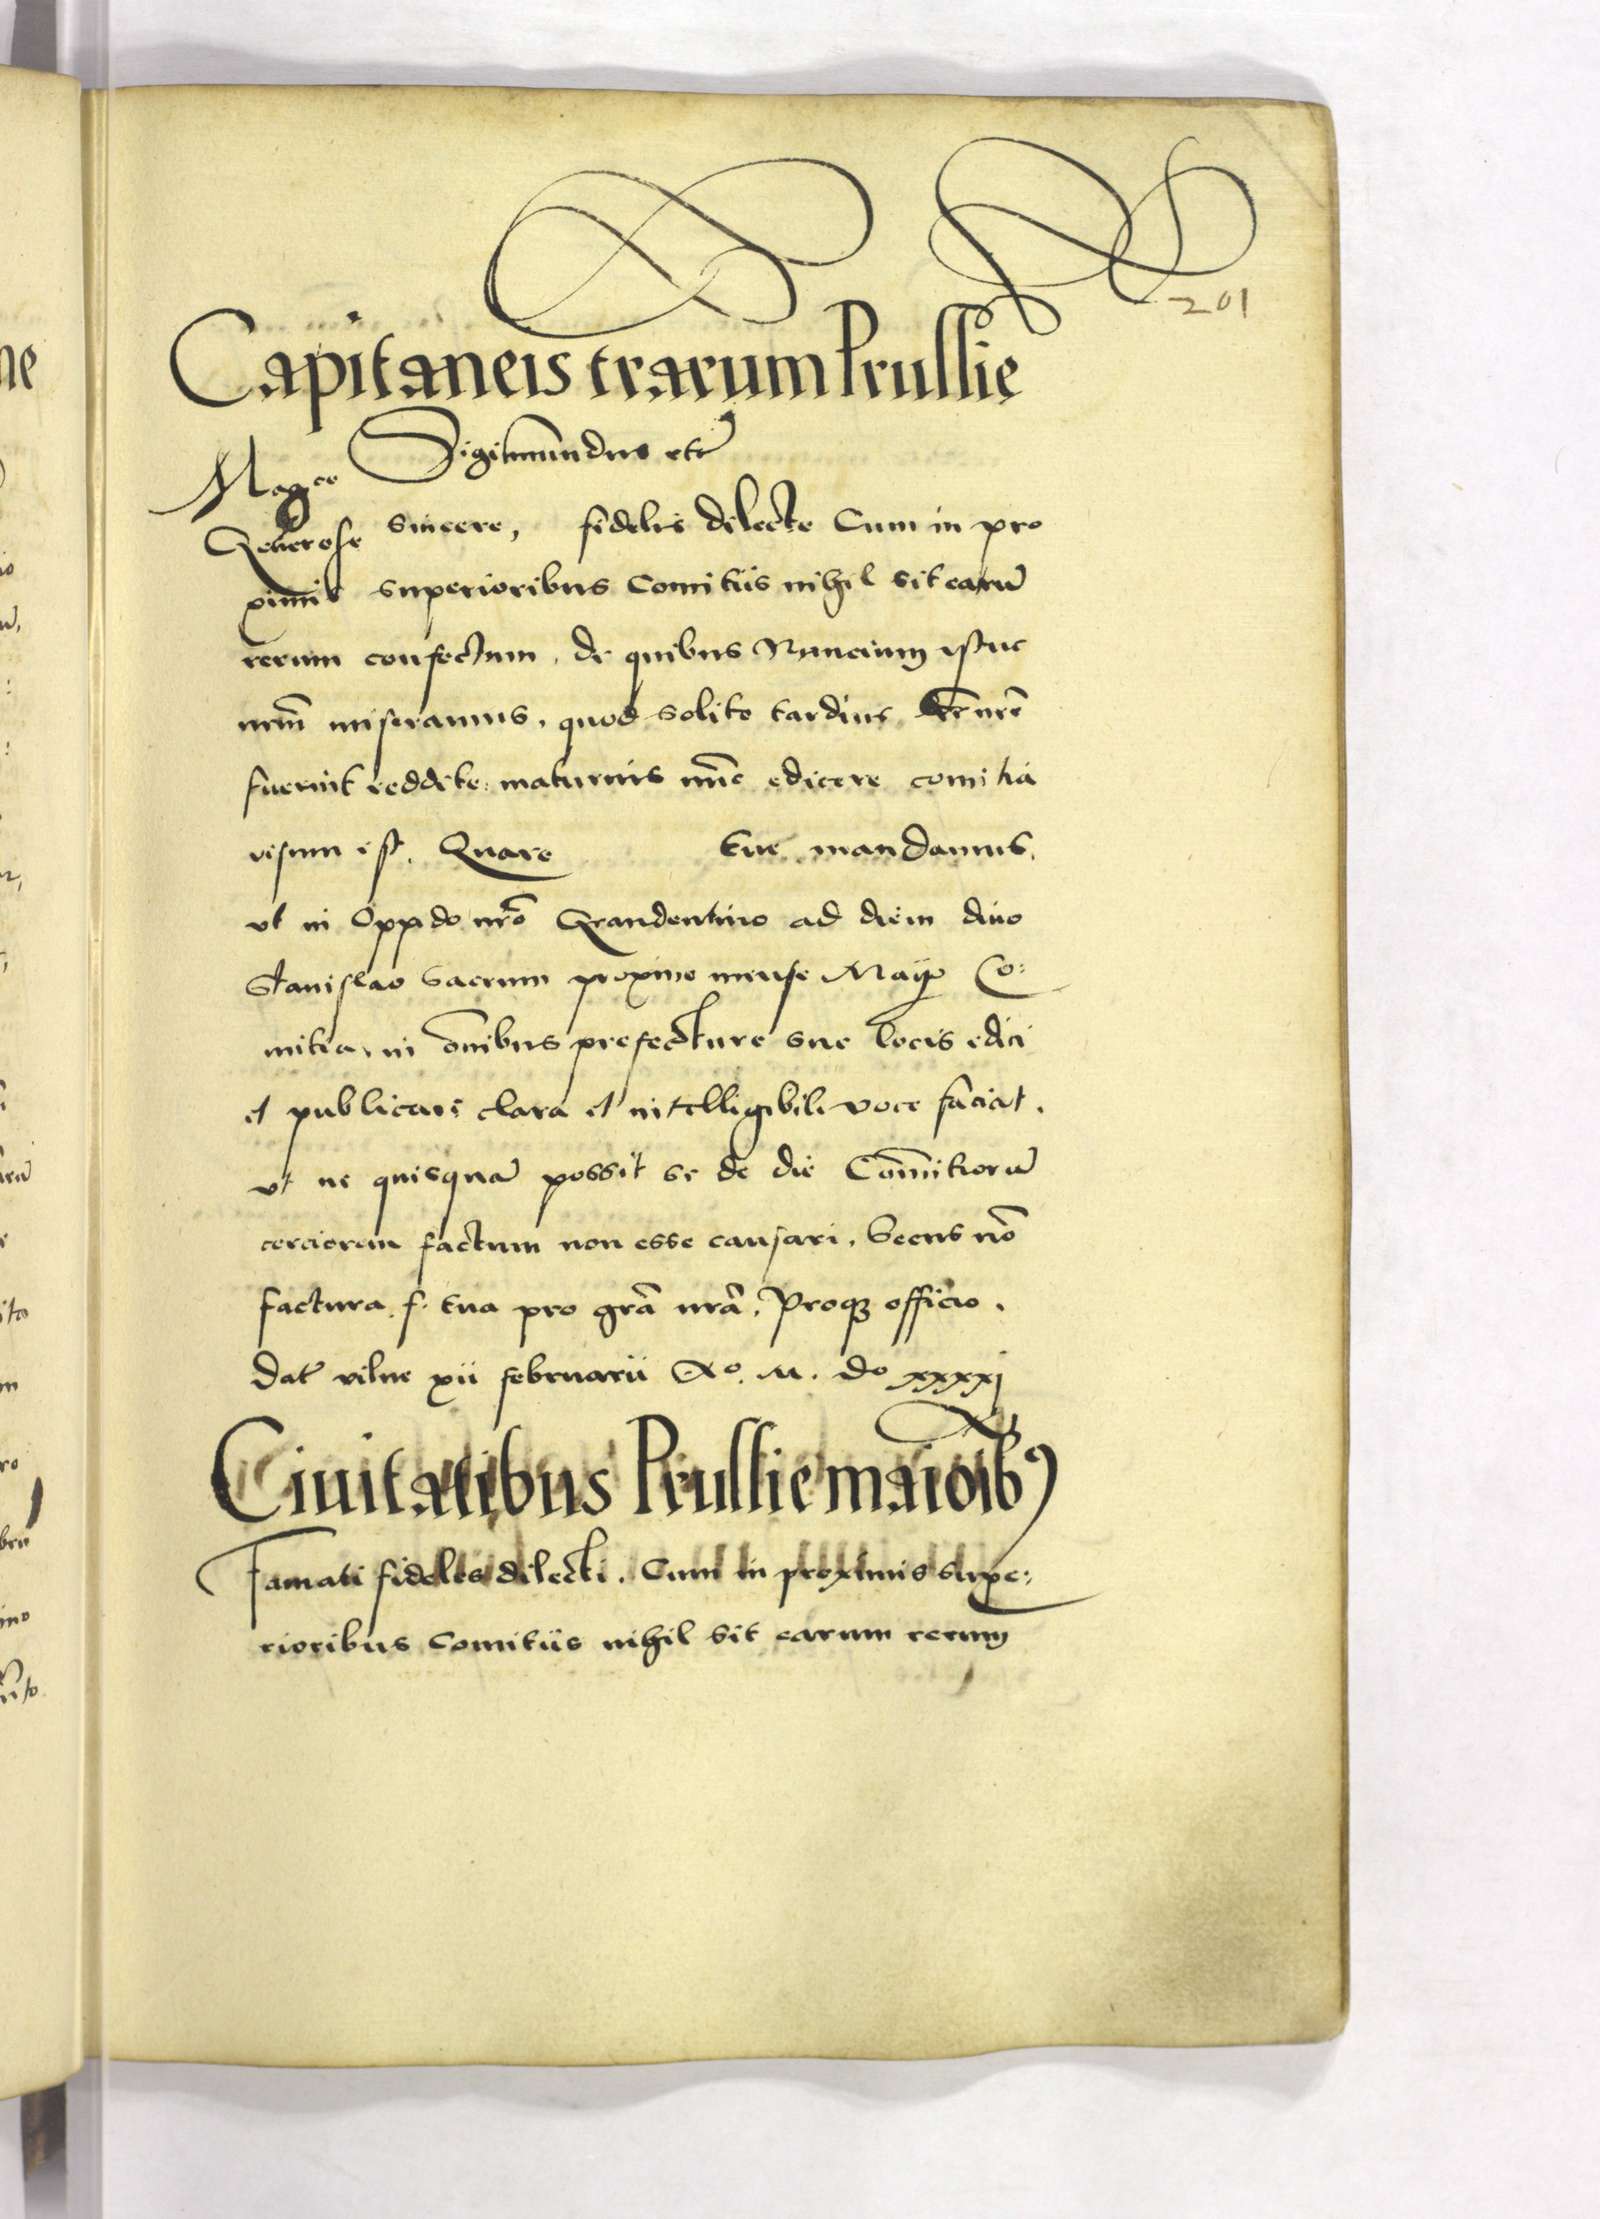 201
Capitaneis trarum Prussie
Sigismundus etc
Magce
Generose sincere, fidelis dilecte Cum in pro
ximis superioribus Comitiis nihil sit earū
rerum confectum, de quibus Nuncium istuc
nrm̄ miseramus, quod solito tardius lrē nrē
fuerint reddite: maturius nūc edicere comitia
visum est, Quare tue mandamus,
vt in Oppido nrō Grandentino ad diem diuo
Stanislao sacrum proximo mense Mayo Co:
mitia, in om̄ibus prefecture sue locis edici
et publicari clara et intelligibili voce faciat,
vt ne quisquā possit se de die Comitiorū
cerciorem factum non esse causari, Secus nō
factura f. tua pro grā nrā, Proqz officio.
Dat vilne xii februarii Ao. M. do xxxxi
Ciuitatibus Prussie maioribꝰ
Famati fideles dilecti. Cum in proximis supe:
rioribus Comitiis nihil sit earum rerum